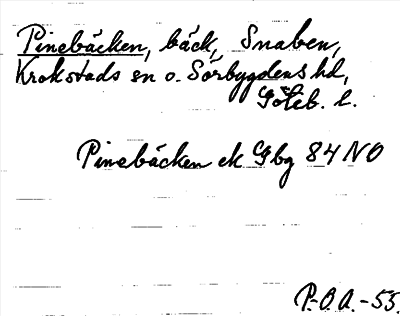 Pinebäcken, bäck, Snaben,
Krokstads sn o. Sörbygdens hd,
Göteb. l.
Pinebäcken ek Gbg 84 NO
P-O.A.-55.